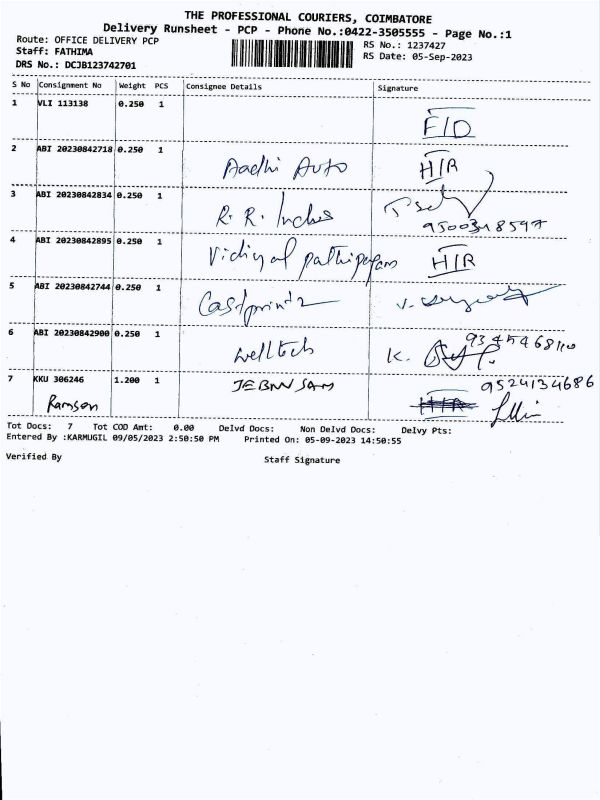 THE PROFESSIONAL COURIERS, COIMBATORE
Delivery Runsheet - PCP - Phone No.:0422-3505555 - Page No.:1
Route: OFFICE DELIVERY PCP
RS No.: 1237427
Staff: FATHIMA
RS Date: 05-Sep-2023
DRS No.: DCJB123742701
S No Consignment No Weight PCS Consignee Details Signature
1 VLI 113138 0.250 1
F/D
2 ABI 20230842718 0.250 1
Aadhi Auto H/R
3 ABI 20230842834 0.250 1
R. R.
4 ABI 20230842895 0.250 1
Vidiyal pathipagam H/R
5 ABI 20230842744 0.250 1
Castprintz
6 ABI 20230842900 0.250 1
welltech K.
7 KKU 306246 1.200 1 9524134686
Ramson
Tot Docs: 7 Tot COD Amt: 0.00 Delvd Docs: Non Delvd Docs: Delvy Pts:
Entered By :KARMUGIL 09/05/2023 2:50:50 PM Printed On: 05-09-2023 14:50:55
Verified By Staff Signature